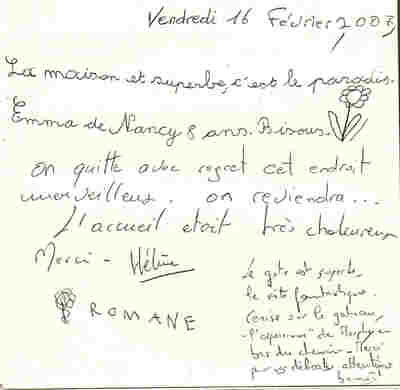 Vendredi 16 Février 2007,
La maison et superbe, c'est le paradis.
Emma de Nancy 8 ans. Bisous.
on quitte avec regret cet endroit
merveilleux. on reviendra...
L'accueil etait très chaleureux
Merci - Hélène
ROMANE
Le gite est superbe,
le site fantastique.
Cerise sur le gateau,
de
bas du chemin - Merci
pour vos délicates attentions
Benoît